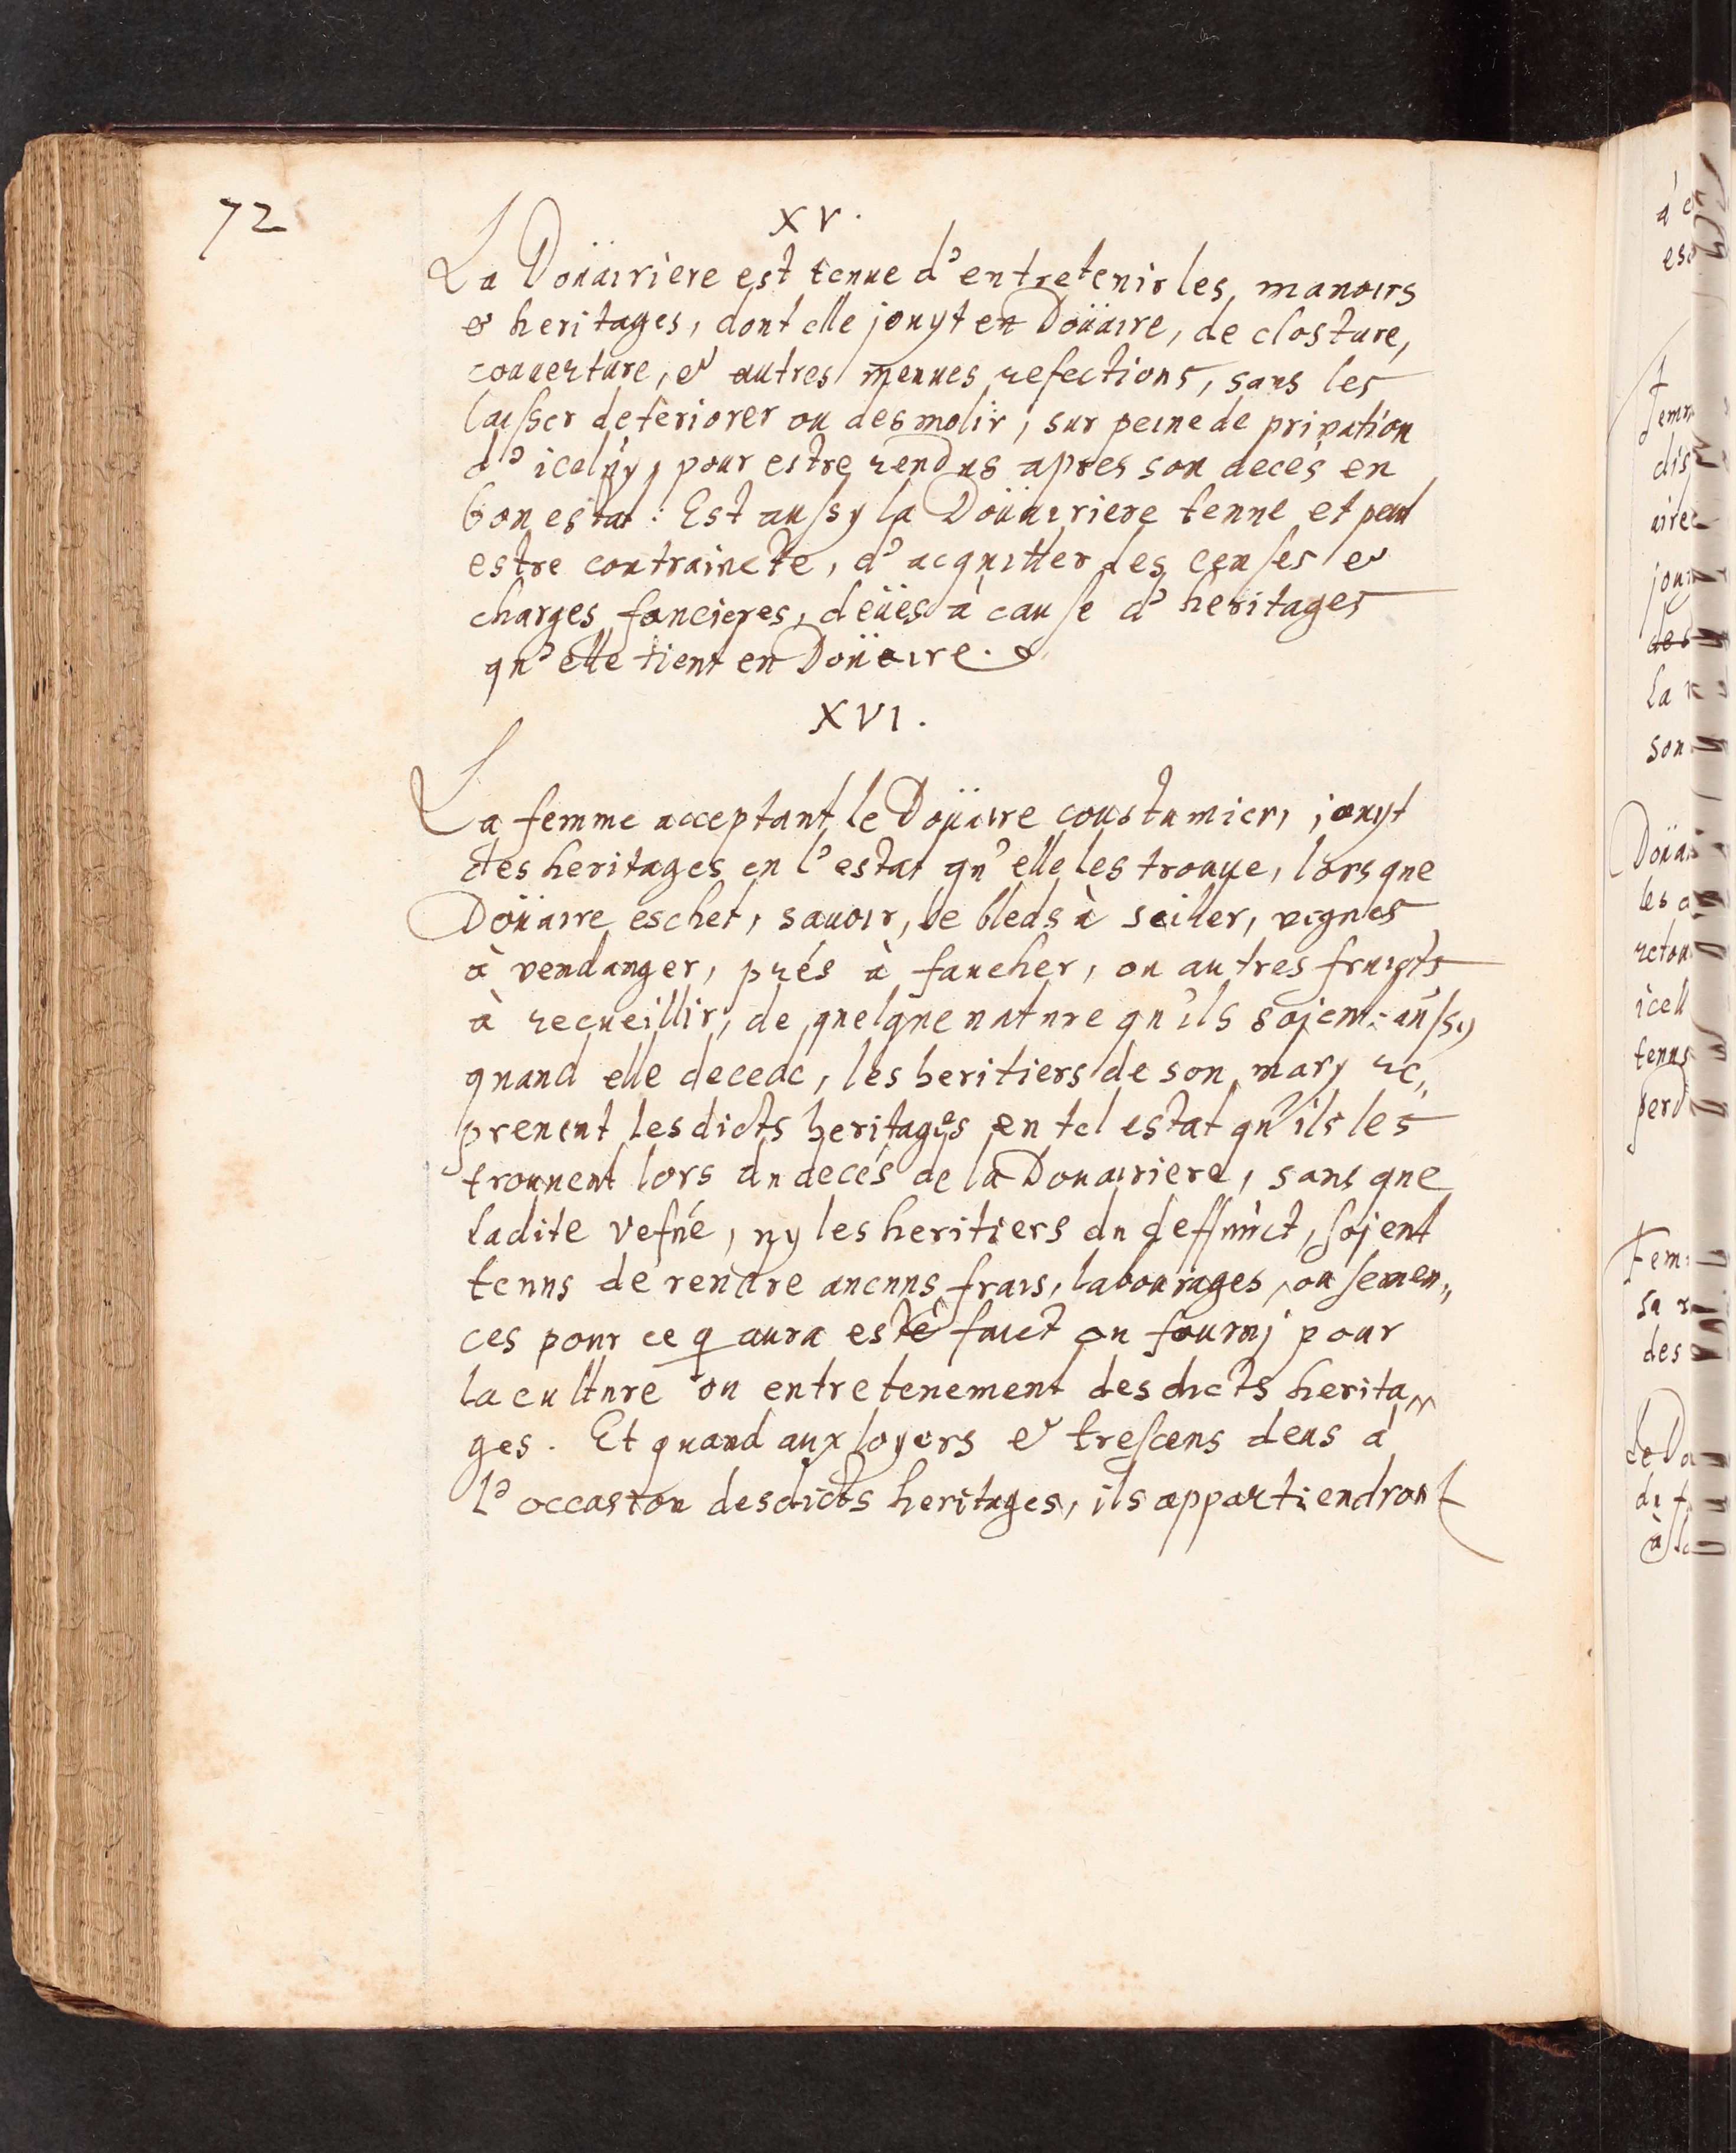 72
XV.
La Doüairiere est tenue d'entretenir les manoirs
& heritages, dont elle jouyt en Doüaire, de closture,
couuerture, & autres menues refections, sans les
laisser deteriorer ou desmolir, sur peine de privation
d'iceluy, pour estre rendus apres son decés en
bon estat : Est aussy la Doüairiere tenue et peut
estre contraincte, d'acquitter les censes &
charges foncieres, deües à cause d'heritages
qu'elle tient en Doüaire.
XVI.
La femme acceptant le Doüaire coustumier, jouyt
des heritages en l'estat qu'elle les trouue, lors que
Doüaire eschet, sauoir, de bleds à seiller, vignes
à vendanger, prés à faucher, ou autres fruicts
à recueillir, de quelque nature qu'ils sojent : aussy
quand elle decede, les heritiers de son mary re„
prenent lesdicts heritages en tel estat qu'ils les
trouuent lors du decés de la Douairiere, sans que
ladite vefue, ny les heritiers du deffunct, sojent
tenus de rendre aucuns frais, labourages, ou semen„
ces pour ce q aura esté faict ou fournj pour
la culture ou entretenement desdicts herita„
ges. Et quand aux loyers & trescens deus à
l'occasion desdicts heritages, ils appartiendront